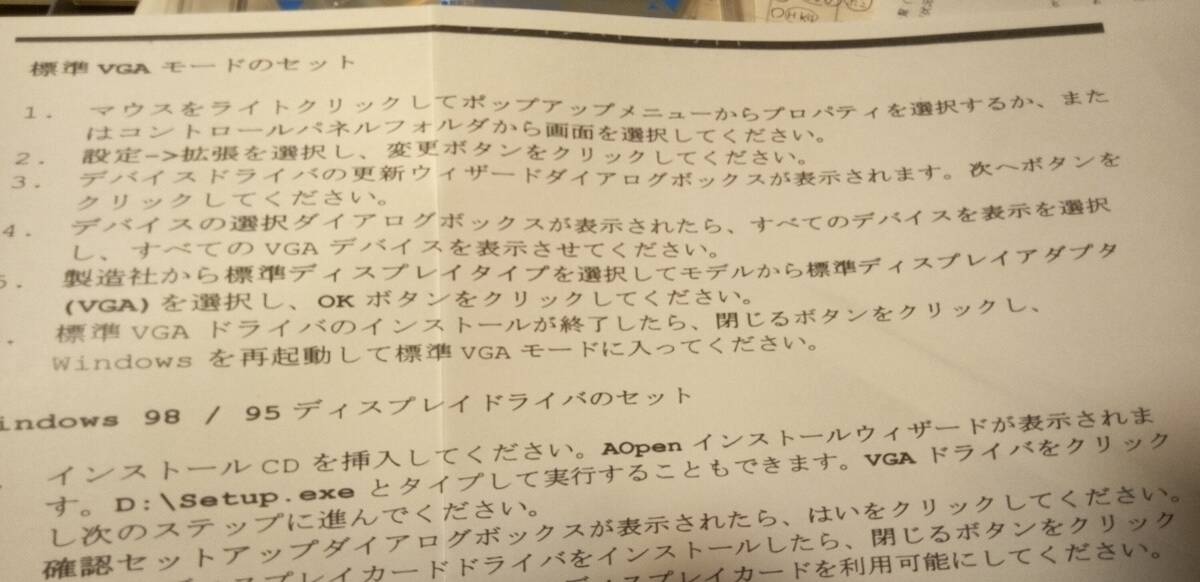 標準 VGA モードのセット
1. マウスをライトクリックしてポップアップメニューからプロパティを選択するか、また
はコントロールパネルフォルダから画面を選択してください。
2. 設定->拡張を選択し、変更ボタンをクリックしてください。
3. デバイスドライバの更新ウィザードダイアログボックスが表示されます。次へボタンを
クリックしてください。
4. デバイスの選択ダイアログボックスが表示されたら、すべてのデバイスを表示を選択
し、すべての VGA デバイスを表示させてください。
5. 製造社から標準ディスプレイタイプを選択してモデルから標準ディスプレイアダプタ
(VGA) を選択し、OK ボタンをクリックしてください。
. 標準 VGA ドライバのインストールが終了したら、閉じるボタンをクリックし、
Windows を再起動して標準 VGA モードに入ってください。
indows 98 / 95 ディスプレイドライバのセット
インストール CD を挿入してください。AOpen インストールウィザードが表示されま
す。D:\Setup.exe とタイプして実行することもできます。VGA ドライバをクリック
し次のステップに進んでください。
確認セットアップダイアログボックスが表示されたら、はいをクリックしてください。
ディスプレイカードドライバをインストールしたら、閉じるボタンをクリック
ディスプレイカードを利用可能にしてください。